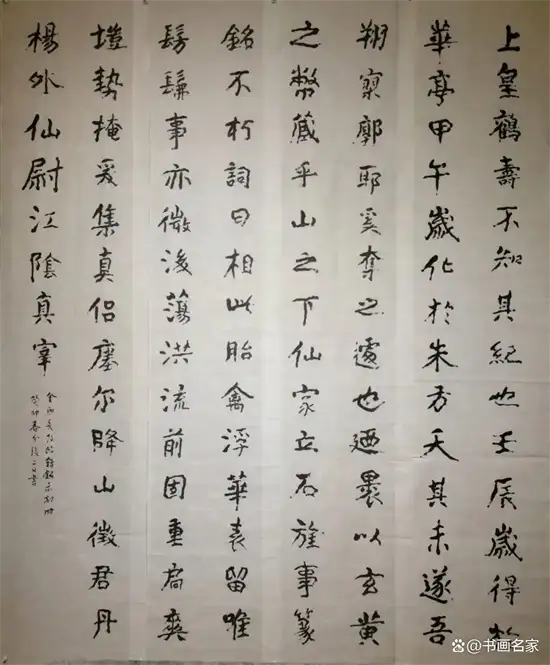 上皇鶴壽不知其紀也壬辰歲得於
華亭甲午歲化於朱方天其未遂吾
翔寥廓耶奚奪之遽也廼裹以玄黃
之幣藏乎山之下仙家立石旌事篆
銘不朽詞曰相此胎禽浮華表留唯
髣髴事亦微浚蕩洪流前固重扃爽
塏勢掩爰集真侶瘞尔降山徵君丹
楊外仙尉江陰真宰
癸卯春分後二日書
书画名家